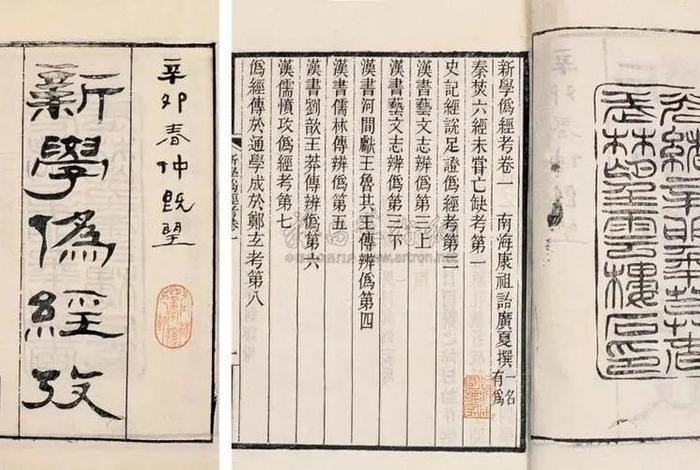 光緒辛卯
武林望雲樓石印
新學僞經考卷一 南海康祖詒廣夏撰 一名有爲
秦焚六經未嘗亡缺考第一
史記經說足證僞經考第二
漢書藝文志辨僞第三上
漢書藝文志辨僞第三下
漢書河間獻王魯共王傳辨僞第四
漢書儒林傳辨僞第五
漢書劉歆王莽傳辨僞第六
漢儒憤攻僞經考第七
僞經傳於通學成於鄭玄考第八
辛卯春仲既望
新學僞經攷